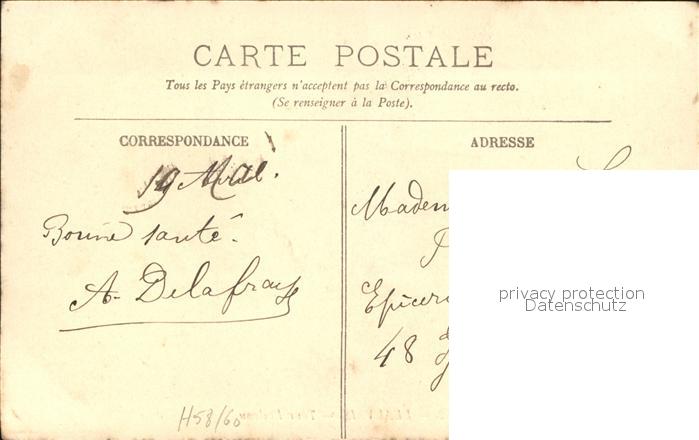 CARTE POSTALE
Tous les Pays étrangers n'acceptent pas la Correspondance au recto.
(Se renseigner à la Poste).
CORRESPONDANCE
19
Bonne santé.
A. Delafraye
ADRESSE
Madem
Epicer
48
privacy protection
Datenschutz
H58/60